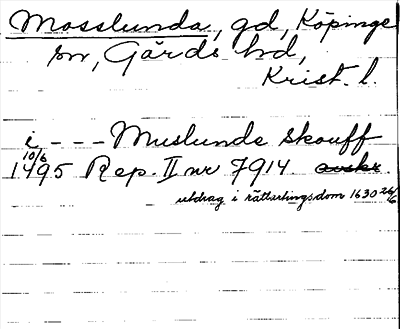 Mosslunda, gd, Köpinge
sn, Gärds hd,
Krist. l.
i --- Muslunde skouff
10/6
1495 Rep. II nr 7914. avskr.
utdrag i rättartingsdom 1630 26/6